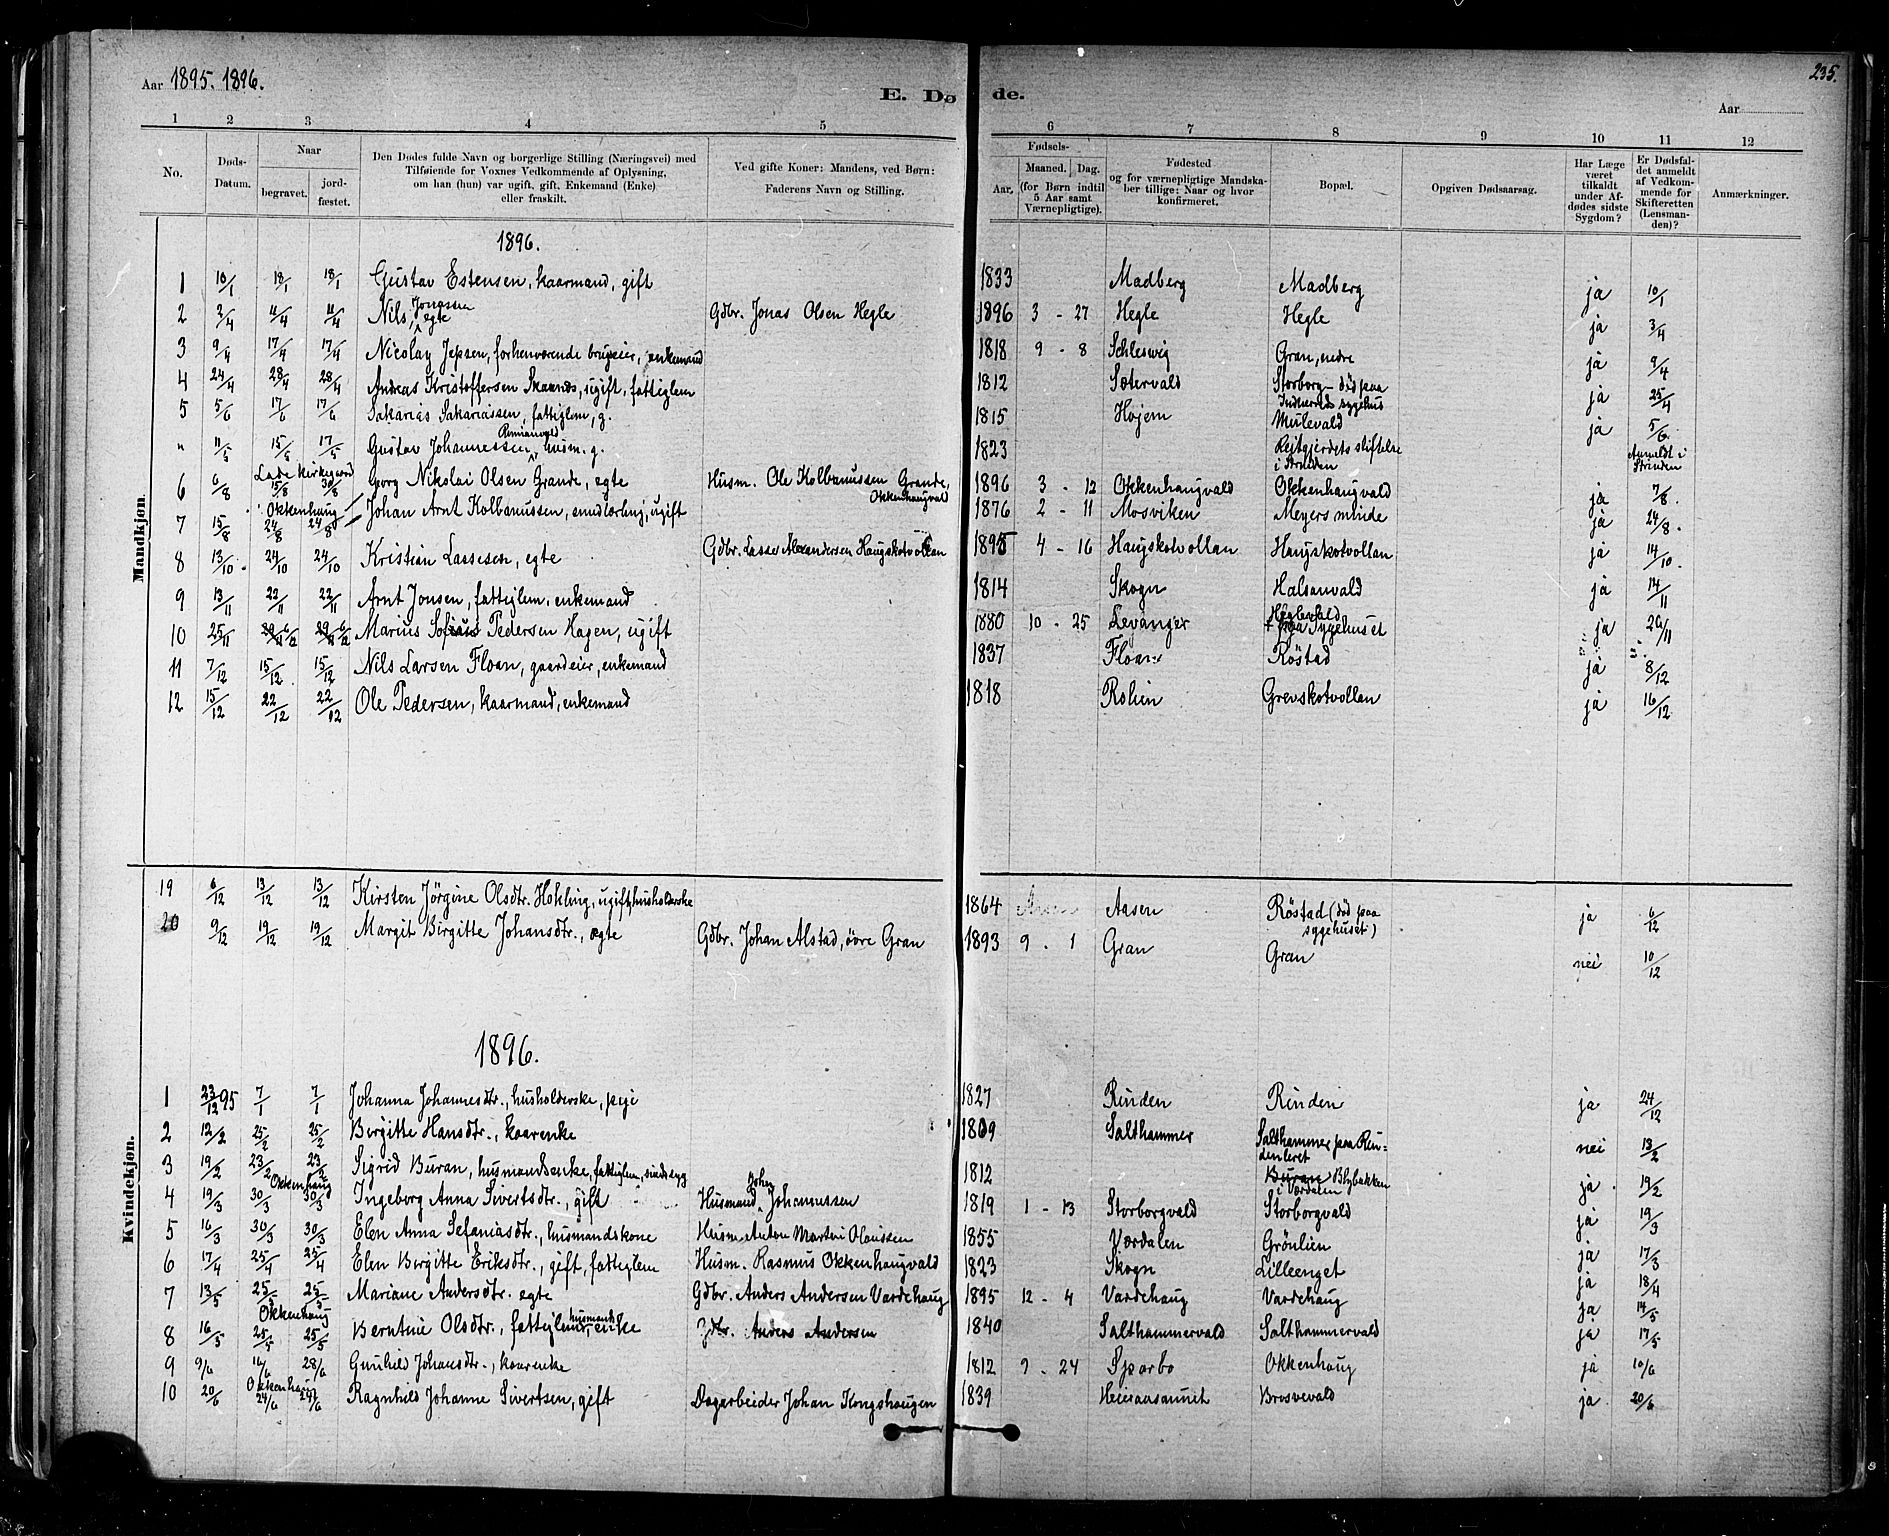 Aar 1895. 1896.
E. Døde.
235.
Aar
1 2 3 4 5 6 7 8 9 10 11 12
No.
Døds-Datum.
Naar
begravet.
jord-fæstet.
Den Dødes fulde Navn og borgerlige Stilling (Næringsvei) med
Tilføiende for Voxnes Vedkommende af Oplysning,
om han (hun) var ugift, gift, Enkemand (Enke)
eller fraskilt.
Ved gifte Koner: Mandens, ved Børn:
Faderens Navn og Stilling.
Fødsels-
Aar.
Maaned. Dag.
(for Børn indtil
5 Aar samt
Værnepligtige).
Fødested
og for værnepligtige Mandska-
ber tillige: Naar og hvor
konfirmeret.
Bopæl.
Opgiven Dødsaarsag.
Har Læge
været
tilkaldt
under Af-
dødes sidste
Sygdom?
Er Dødsfal-
det anmeldt
af Vedkom-
mende for
Skifteretten
(Lensman-
den)?
Anmærkninger.
Mandkjøn.
1896.
1 10/1 18/1 18/1 Gustav Estensen, kaarmand, gift 1833 Madberg Madberg ja 10/1
2 2/4 11/4 11/4 Nils Jonassen, egte Gdbr. Jonas Olsen Hegle 1896 3 - 27 Hegle Hegle ja 3/4
3 9/4 17/4 17/4 Nicolay Jepsen, forhenværende brugseier, enkemand 1818 9 - 8 Schleswig Gran, nedre ja 9/4
4 24/4 28/4 28/4 Andreas Kristoffersen Skaanes, ugift, fattiglem 1812 Sætervald Storborg - død paa Indherreds sygehus ja 25/4
5 5/6 17/6 17/6 Sakarias Sakariassen, fattiglem, g. 1815 Hojem Mulevald ja 5/6
" 11/5 15/5 17/5 Gustav Johannessen, husm. g. 1823 Reitgjerdets stiftelse i Strinden Anmeldt i Strinden
Lade kirkegaard
6 6/8 15/8 30/8 Georg Nikolai Olsen Grande, egte Husm. Ole Kolbanussen Grande, Okkenhaugvald 1896 3 - 12 Okkenhaugvald Okkenhaugvald ja 7/8
Okkenhaug
7 15/8 24/8 24/8 Johan Arnt Kolbanussen, smedlærling, ugift 1876 2 - 11 Mosviken Meyers minde ja 24/8
8 13/10 24/10 24/10 Kristian Lassesen, egte Gdbr. Lasse Alexandersen Haugskotvollan 1895 4 - 16 Haugskotvollan Haugskotvollan ja 14/10
9 13/11 22/11 22/11 Arnt Jonsen, fattiglem, enkemand 1814 Skogn Halsanvald ja 14/11
10 25/11 29/11 6/12 29/11 6/12 Marius Sofius Pedersen Hagen, ugift 1880 10 - 25 Levanger Heglevald + paa Sygehuset ja 26/11
11 7/12 15/12 15/12 Nils Larsen Floan, gaardeier, enkemand 1837 Floan Röstad ja 8/12
12 15/12 22/12 22/12 Ole Pedersen, kaarmand, enkemand 1818 Rolien Grevskotvollan ja 16/12
Kvindekjøn.
19 6/12 13/12 13/12 Kirsten Jörgine Olsdtr. Hokling, ugift, husholderske 1864 Aasen Röstad (död paa sygehuset) ja 6/12
20 9/12 19/12 19/12 Margit Birgitte Johansdtr., egte Gdbr. Johan Alstad, övre Gran 1893 9 - 1 Gran Gran nei 10/12
1896.
1 23/12 95 7/1 7/1 Johanna Johannesdtr., husholderske, pige 1827 Rinden Rinden ja 24/12
2 12/2 25/2 25/2 Birgitte Hansdtr., kaarenke 1809 Salthammer Salthammer paa Rindenleret nei 13/2
3 19/2 23/2 23/2 Sigrid Buran, husmandsenke, fattiglem, sindssyg 1812 Buran Blybakken i Værdalen ja 19/2
Okkenhaug
4 19/3 30/3 30/3 Ingeborg Anna Sivertsdtr., gift Husmand Johan Johannessen 1819 1 - 13 Storborgvald Storborgvald ja 19/3
5 16/3 30/3 30/3 Elen Anna Sefaniasdtr., husmandskone Husm. Anton Martin Olaissen 1855 Værdalen Grönlien ja 17/3
6 17/4 25/4 25/4 Elen Birgitte Eriksdtr., gift, fattiglem Husm. Rasmus Okkenhaugvald 1823 Skogn Lilleenget ja 18/4
7 13/5 25/5 25/5 Mariane Andersdtr. egte Gdbr. Anders Andersen Vardehaug 1895 12 - 4 Vardehaug Vardehaug ja 14/5
Okkenhaug
8 16/5 25/5 25/5 Berntine Olsdtr., fattiglem, husmandsenke Gdbr. Anders Andersen 1840 Salthammervald Salthammervald ja 17/5
9 9/6 16/6 28/6 Gunhild Johansdtr., kaarenke 1812 9 - 24 Sparbo Okkenhaug ja 10/6
Okkenhaug
10 20/6 24/6 24/6 Ragnhild Johanne Sivertsen, gift Dagarbeider Johan Kongshaugen 1839 Brosvevald ja 20/6